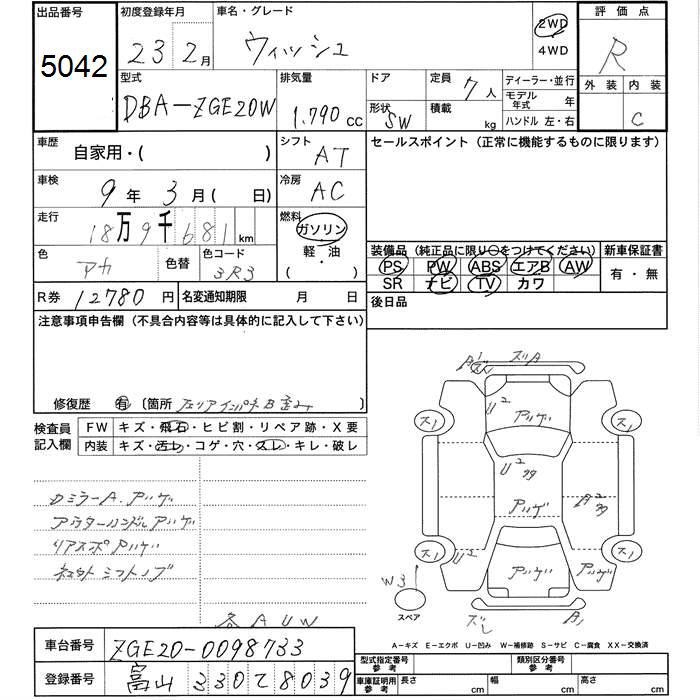 出品番号 初度登録年月 車名・グレード 評価点
5042 23 2月 ウィッシュ 2WD 4WD R
外装 内装
C
型式 排気量 ドア 定員 ディーラー・並行
DBA-ZGE20W 1.790 cc 7人 モデル年式 年
形状 SW 積載 kg ハンドル 左・右
車歴 自家用・( ) シフト AT セールスポイント (正常に機能するものに限ります)
車検 9年 3月 ( 日) 冷房 AC
走行 18万9千681 km 燃料 ガソリン 軽・油 ( ・ )
色 アカ 色替 色コード 3R3
装備品 (純正品に限り○をつけてください) 新車保証書
PS PW ABS エアB AW 有・無
SR ナビ TV カワ
R券 12780円 名変通知期限 月 日 後日品
注意事項申告欄 (不具合内容等は具体的に記入して下さい)
修復歴 有 〔箇所 リアインパネB歪み 〕
検査員記入欄 FW キズ・飛石・ヒビ割・リペア跡・X要
内装 キズ・汚レ・コゲ・穴・スレ・キレ・破レ
DミラーA. アリゲ
アウターハンドルアリゲ
リアスポアリゲ
シフトノブ
各AUW
ズリA
U2 アリゲ
スリ スリ
U2
アリゲ A2
スリ スリ
U2 アリゲ アリゲ
W3
スペア
ズレ B1
A-キズ E-エクボ U-凹み W-補修跡 S-サビ C-腐食 XX-交換済
車台番号 ZGE20-0098733
型式指定番号 参考 類別区分番号 参考
登録番号 富山 330 て 8039
車庫証明用 参考 長さ cm 幅 cm 高さ cm